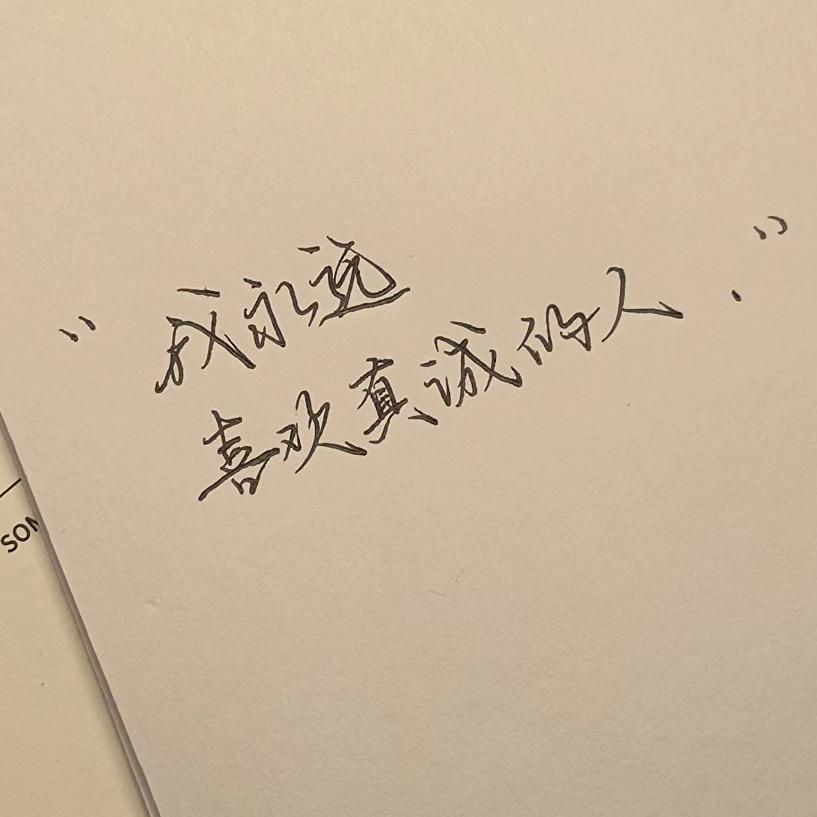 “我永远
喜欢真诚的人.”
SON